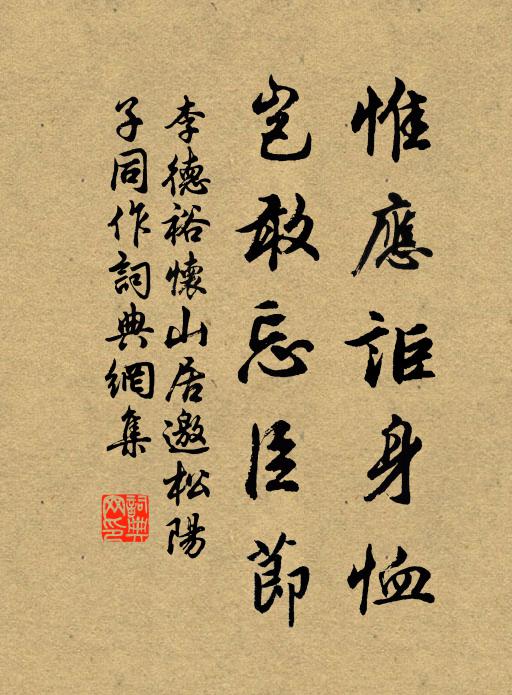 惟應詎身恤
豈敢忘臣節
李德裕懷山居邀松陽
子同作詞典網集
詞典
网印